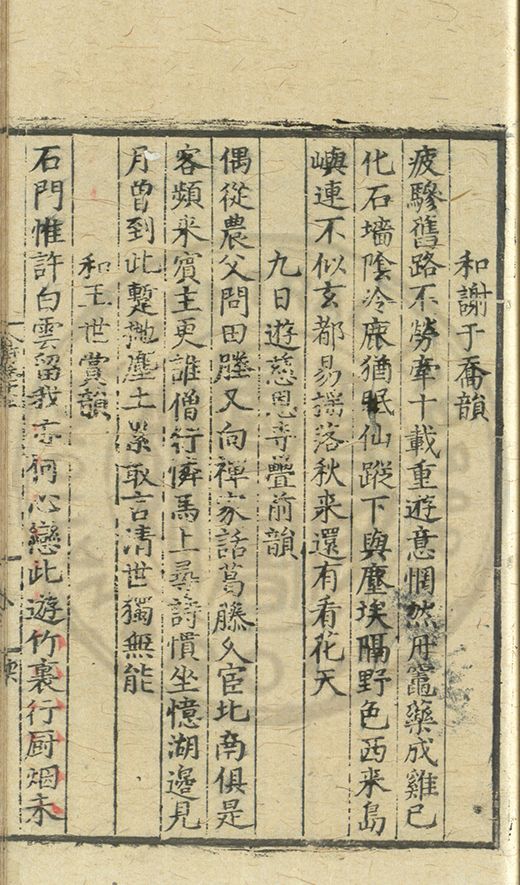 和謝于喬韻
疲驂舊路不勞牽十載重遊意惘然丹竈藥成雞已
化石墻陰冷鹿猶眠仙蹤下與塵埃隔野色西來島
嶼連不似玄都易摇落秋來還有看花天
九日遊慈恩寺疊前韻
偶從農父問田塍又向禪家話葛藤久宦北南俱是
客頻來賓主更誰僧行儕馬上尋詩慣坐憶湖邊見
月曽到此蹔抛塵土累敢言清世獨無能
和王世賞韻
石門惟許白雲留我亦何心戀此遊竹裏行厨烟未